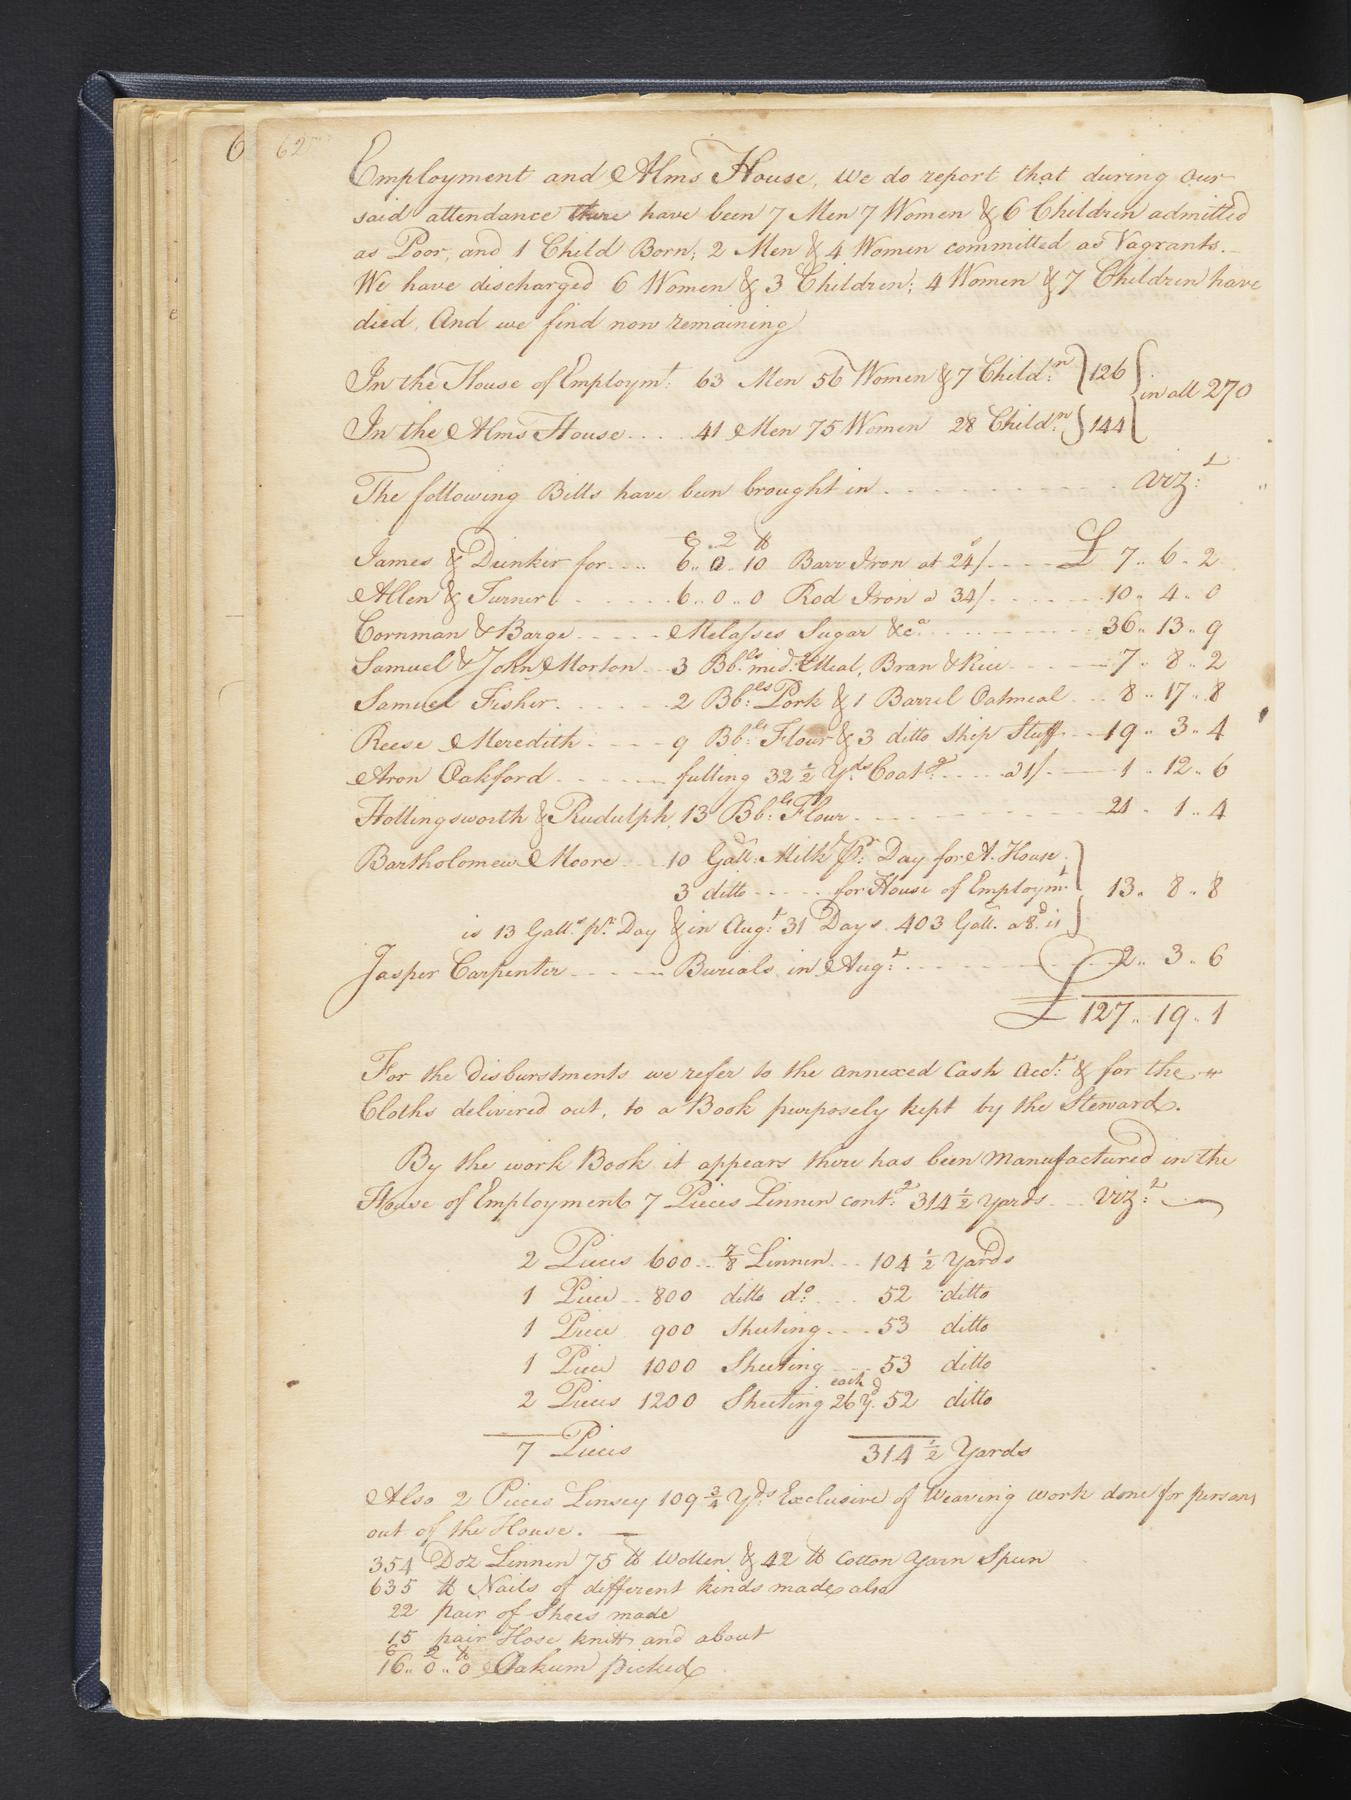 6 62
Employment and Alms House, We do report that during our
said attendance there have been 7 Men 7 Women & 6 Children admitted
as Poor, and 1 Child Born; 2 Men & 4 Women committed as Vagrants.
We have discharged 6 Women & 3 Children; 4 Women & 7 Children have
died. And we find now remaining
In the House of Employmt: 63 Men 56 Women & 7 Child:n } 126 { in all 270
In the Alms House .... 41 Men 75 Women 28 Child:n } 144
The following Bills have been brought in . . . . . . . . . vizt:
C Q ℔
James & Drinker for .... 6.. 0.. 10 Barr Iron at 24s/ - - - - £ 7.. 6.. 2
Allen & Turner . - - - - - 6.. 0.. 0 Rod Iron a 34/ - - - - - - 10.. 4.. 0
Cornman & Barge - - - - - Melasses Sugar &ca. - - - - - - - 36.. 13.. 9
Samuel & John Morton - - 3 Bbls: midg Meal, Bran & Rice - - - - 7.. 8.. 2
Samuel Fisher . - - - - - 2 Bb:ls Pork & 1 Barrel Oatmeal - - 8.. 17.. 8
Reese Meredith - - - - 9 Bb:ls Flour & 3 ditto Ship Stuff - - 19.. 3.. 4
Aron Oakford - - - - - - fulling 32 1/2 Y:ds Coatg - - - - a 1/ - - - 1.. 12.. 6
Hollingsworth & Rudulph, 13 Bb:ls Flour - - - - - - - - - - 21.. 1.. 4
Bartholomew Moore - - - 10 Gall: Milk Pr: Day for A. House
3 ditto - - - - - for House of Employmt } 13.. 8.. 8
is 13 Galls: pr: Day & in Augt: 31 Days. 403 Gall. a 8d: is
Jasper Carpenter - - - - - Burials in Augt: - - - - - - - - - 2.. 3.. 6
£ 127.. 19.. 1
For the disburstments we refer to the annexed Cash Acct: & for the
Cloths delivered out, to a Book purposely kept by the Steward.
By the work Book it appears there has been Manufactured in the
House of Employment 7 Pieces Linnen contg: 314 1/2 Yards - - - vizt:
2 Pieces 600 .. 7/8 Linnen - - - 104 1/2 Yards
1 Piece - - 800 ditto do: - - - 52 ditto
1 Piece 900 Sheeting - - - - 53 ditto
1 Piece 1000 Sheeting - - - 53 ditto
2 Pieces 1200 Sheeting each 26 Yd. 52 ditto
7 Pieces 314 1/2 Yards
Also 2 Pieces Linsey 109 3/4 Yds: Exclusive of Weaving work done for persons
out of the House. —
354 Doz Linnen 75 ℔ Wollen & 42 ℔ Cotton Yarn Spun
635 ℔ Nails of different kinds made also
22 pair of Shoes made
15 pair Hose knitt and about
C Q ℔
16.. 0.. 0 Oakum picked